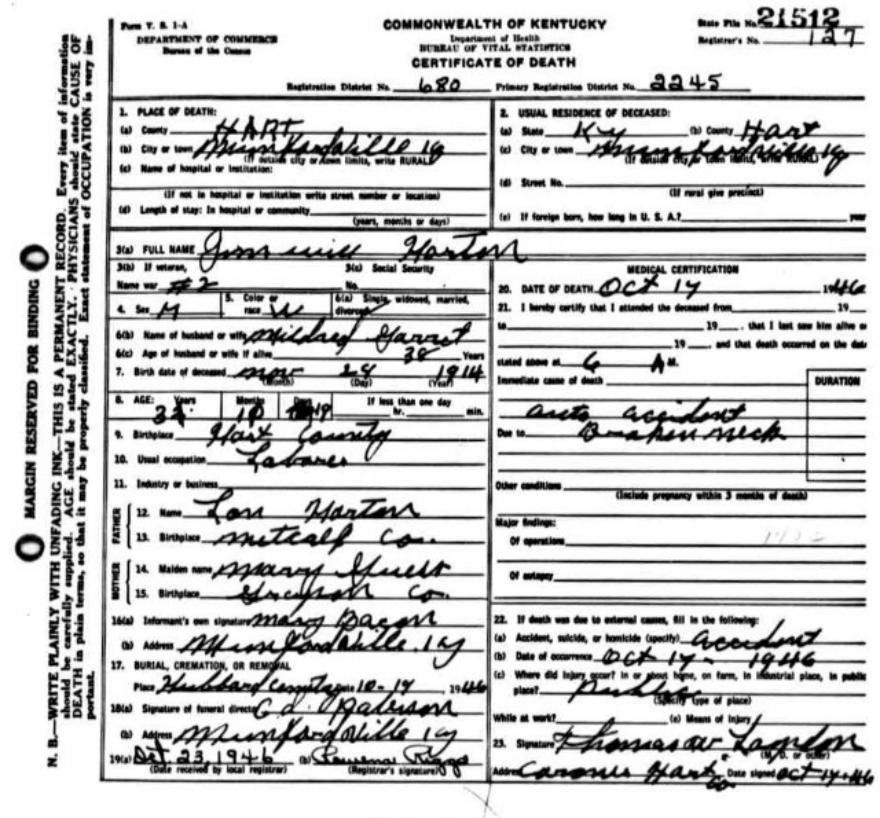 Form V. S. 1-A
DEPARTMENT OF COMMERCE
Bureau of the Census
COMMONWEALTH OF KENTUCKY
Department of Health
BUREAU OF VITAL STATISTICS
CERTIFICATE OF DEATH
State File No. 21512
Registrar's No. 127
Registration District No. 680 Primary Registration District No. 2245
MARGIN RESERVED FOR BINDING
N. B.—WRITE PLAINLY WITH UNFADING INK—THIS IS A PERMANENT RECORD. Every item of information
should be carefully supplied. AGE should be stated EXACTLY. PHYSICIANS should state CAUSE OF
DEATH in plain terms, so that it may be properly classified. Exact statement of OCCUPATION is very im-
portant.
1. PLACE OF DEATH:
(a) County HART
(b) City or town Munfordville Ky
(If outside city or town limits, write RURAL)
(c) Name of hospital or institution:
(If not in hospital or institution write street number or location)
(d) Length of stay: In hospital or community
(years, months or days)
2. USUAL RESIDENCE OF DECEASED:
(a) State Ky (b) County Hart
(c) City or town Munfordville Ky
(If outside city or town limits, write RURAL)
(d) Street No.
(If rural give precinct)
(e) If foreign born, how long in U. S. A.? year
3(a) FULL NAME Jim will Horton
3(b) If veteran,
Name war #2
3(c) Social Security
No.
4. Sex M
5. Color or
race W
6(a) Single, widowed, married,
divorced
6(b) Name of husband or wife Mildred Garret
6(c) Age of husband or wife if alive 38 Years
7. Birth date of deceased Nov 28 1914
(Month) (Day) (Year)
8. AGE: Years Months Days If less than one day
10 19 hr. min.
9. Birthplace Hart County
10. Usual occupation Laborer
11. Industry or business
FATHER
12. Name Lon Horton
13. Birthplace Metcalf Co.
MOTHER
14. Maiden name Mary
15. Birthplace Grayson Co.
16(a) Informant's own signature Mary Bacon
(b) Address Munfordville Ky
17. BURIAL, CREMATION, OR REMOVAL
Place Hubbard Date 10-17, 1946
18(a) Signature of funeral director
(b) Address Munfordville Ky
19(a) Oct. 23, 1946 (b) Riggs
(Date received by local registrar) (Registrar's signature)
MEDICAL CERTIFICATION
20. DATE OF DEATH Oct 17 1946
21. I hereby certify that I attended the deceased from 19
to 19 , that I last saw him alive on
19 , and that death occurred on the date
stated above at 6 A M.
Immediate cause of death
DURATION
auto accident
Due to Broken neck
Other conditions
(Include pregnancy within 3 months of death)
Major findings:
Of operations
Of autopsy
22. If death was due to external causes, fill in the following:
(a) Accident, suicide, or homicide (specify) accident
(b) Date of occurrence Oct 17 - 1946
(c) Where did injury occur? In or about home, on farm, in industrial place, in public
place?
(Specify type of place)
While at work? (e) Means of injury
23. Signature Thomas W
(M. D. or other)
Address Coroner Hart Co Date signed Oct 17-46